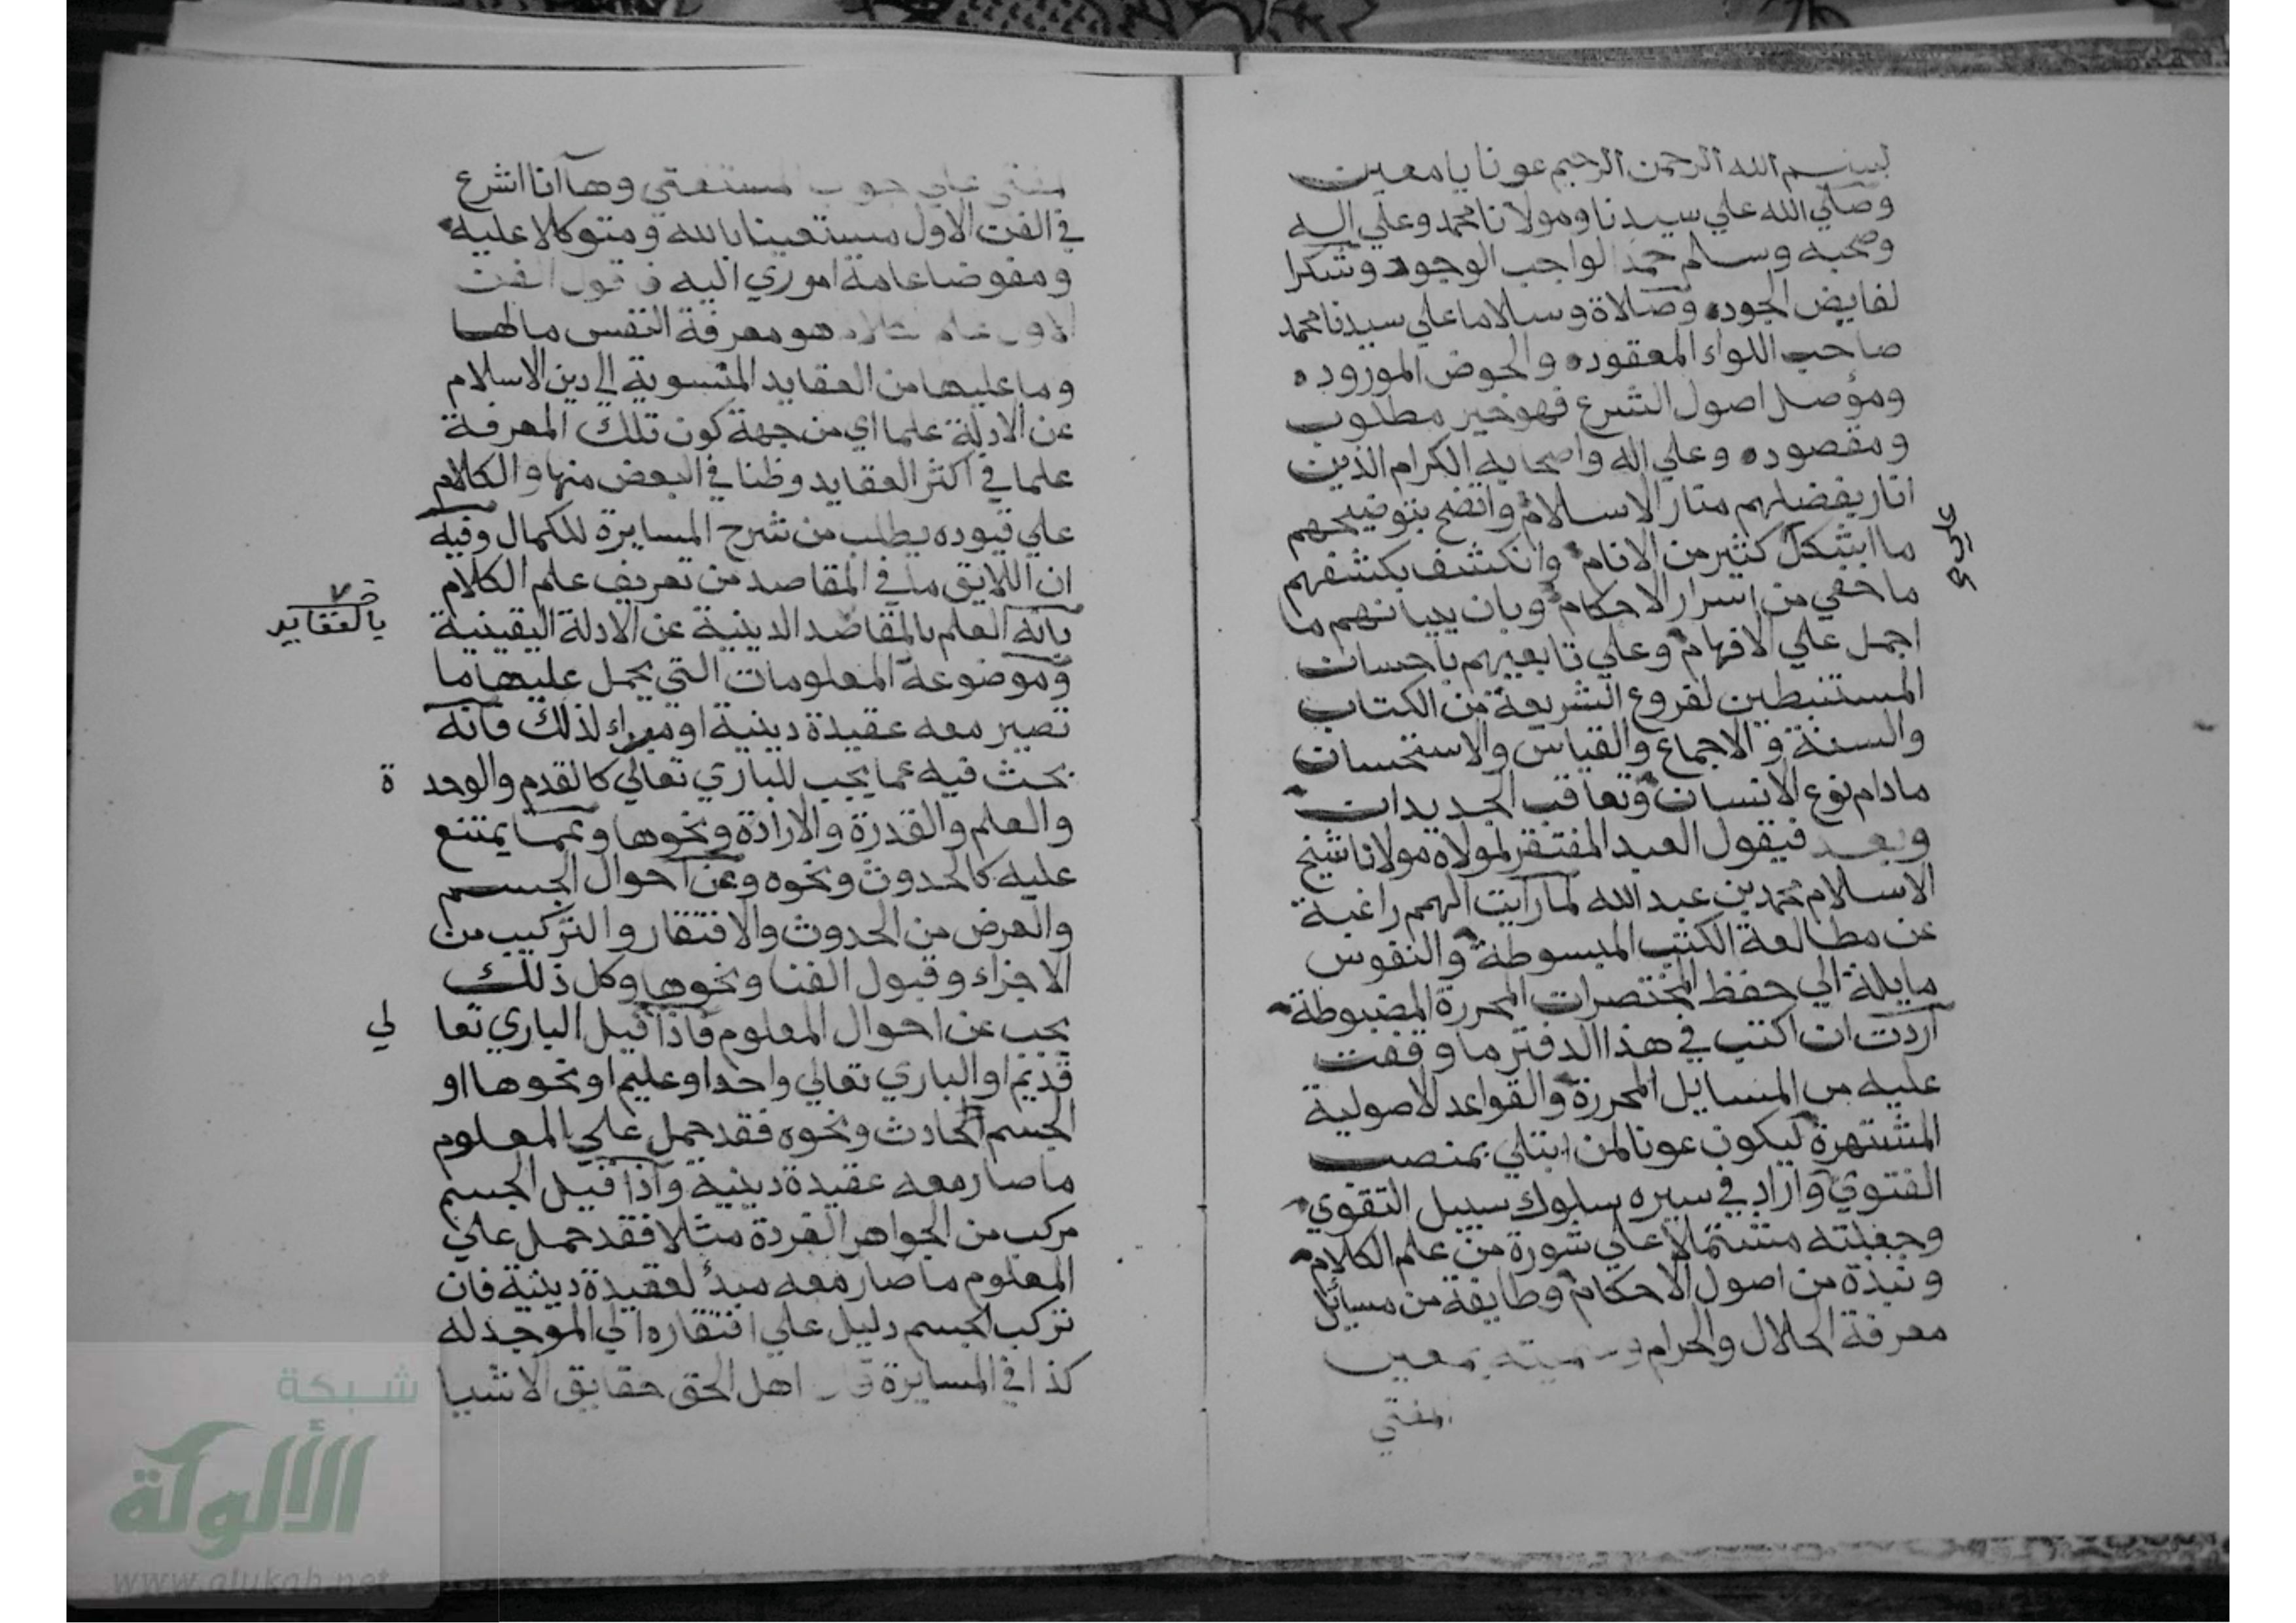 بسم الله الرحمن الرحيم عونا يا معين
وصلي الله علي سيدنا ومولانا محمد وعلي اله
وصحبه وسلم حمدا لواجب الوجود وشكرا
لفايض الجوده وصلاة وسلاما علي سيدنا محمد
صاحب اللواء المعقوده والحوض الموروده
ومؤصل اصول الشرع فهو خير مطلوب
ومقصوده وعلي اله واصحابه الكرام الذين
انار بفضلهم منار الاسلام واتضح بتوضيحهم
ما اشكل كثير من الانام وانكشف بكشفهم
علي
ما خفي من اسرار الاحكام وبان ببيانهم ما
اجمل علي الافهام وعلي تابعيهم باحسان
المستنبطين لفروع الشريعة من الكتاب
والسنة والاجماع والقياس والاستحسان
مادام نوع الانسان وتعاقب الجديدان
وبعد فيقول العبد المفتقر لمولاه مولانا شيخ
الاسلام محمد بن عبد الله لما رايت الهمم راغبة
عن مطالعة الكتب المبسوطة والنفوس
مايلة الي حفظ المختصرات المحررة المضبوطة
اردت ان اكتب في هذا الدفتر ما وقفت
عليه من المسايل المحررة والقواعد الاصولية
المشتهرة ليكون عونا لمن ابتلي بمنصب
الفتوي واراد في سيره سلوك سبيل التقوي
وجعلته مشتملا علي شورة من علم الكلام
ونبذة من اصول الاحكام وطايفة من مسائل
معرفة الحلال والحرام وسميته بمعين
المفتي
المفتي علي جواب المستفتي وها انا اشرع
في الفن الاول مستعينا بالله ومتوكلا عليه
ومفوضا عامة اموري اليه فاقول الفن
الاول علم الكلام هو معرفة النفس مالها
وما عليها من العقايد المنسوبة الي دين الاسلام
عن الادلة علما اي من جهة كون تلك المعرفة
علما في اكثر العقايد وظنا في البعض منها والكلام
علي قيوده يطلب من شرح المسايرة للكمال وفيه
ان اللايق ما في المقاصد من تعريف علم الكلام
بانه العلم بالمقاصد الدينية عن الادلة اليقينية
بالعقايد
وموضوعه المعلومات التي يحمل عليها ما
تصير معه عقيدة دينية او مبداء لذلك فانه
بحث فيه عما يجب للباري تعالي كالقدم والوحدة
والعلم والقدرة والارادة ونحوها وعما يمتنع
عليه كالحدوث ونحوه وعن احوال الجسم
والعرض من الحدوث والافتقار والتركيب من
الاجزاء وقبول الفنا ونحوها وكل ذلك
يجب عن احوال المعلوم فاذا قيل الباري تعالي
قديم او الباري تعالي واحد او عليم او نحوها او
الجسم الحادث ونحوه فقد حمل علي المعلوم
ما صار معه عقيدة دينية واذا قيل الجسم
مركب من الجواهر الفردة مثلا فقد حمل علي
المعلوم ما صار معه مبدأ لعقيدة دينية فان
تركب الجسم دليل علي افتقاره الي الموجد له
كذا في المسايرة قال اهل الحق حقايق الاشيا
شبكة
الألوكة
www.alukah.net